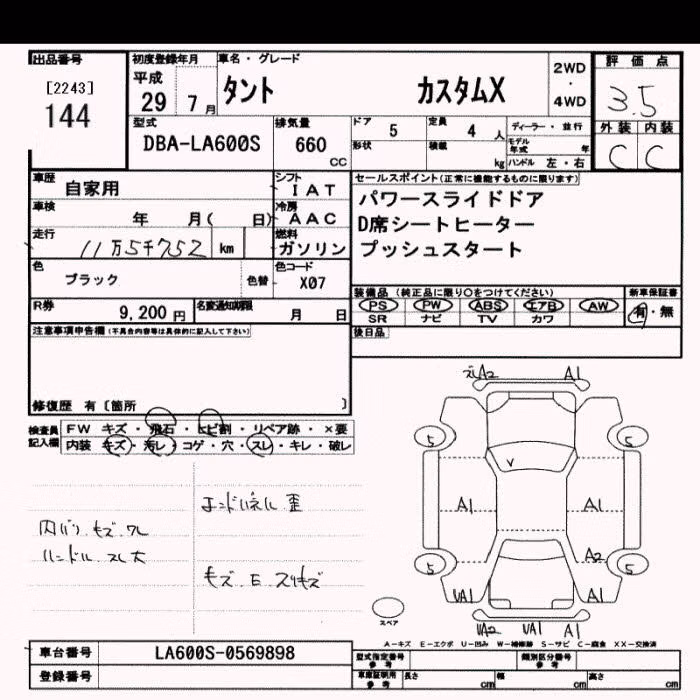 出品番号
[2243]
144
初度登録年月
平成
29 7月
車名・グレード
タント カスタムX
2WD
・
4WD
評価点
3.5
外装 内装
C C
型式
DBA-LA600S
排気量
660
cc
ドア
5
定員
4 人
形状
積載
kg
ディーラー・並行
モデル年式 年
ハンドル 左・右
車歴
自家用
シフト
IAT
車検
年 月( 日)
冷房
AAC
走行
11万5千752 km
燃料
ガソリン
色
ブラック
色替
色コード
X07
R券
9,200 円
名変通知期限
月 日
セールスポイント(正常に機能するものに限ります)
パワースライドドア
D席シートヒーター
プッシュスタート
装備品(純正品に限り○をつけてください)
PS PW ABS エアB AW
SR ナビ TV カワ
新車保証書
有・無
後日品
注意事項申告欄(不具合内容等は具体的に記入して下さい)
修復歴 有〔箇所 〕
検査員
記入欄
FW キズ・飛石・ヒビ割・リペア跡・×要
内装 キズ・汚レ・コゲ・穴・スレ・キレ・破レ
エンドパネル 歪
内バリ キズ ワレ
ハンドル スレ大
キズ E スリキズ
ズレA2 A1
5 5
V
A1 A1
A2
5 5
UA1 A1
UA2 UA1 A1
スペア
A-キズ E-エクボ U-凹み W-補修跡 S-サビ C-腐食 XX-交換済
車台番号
LA600S-0569898
登録番号
型式指定番号
参考
類別区分番号
参考
車庫証明用
参考
長さ cm 幅 cm 高さ cm